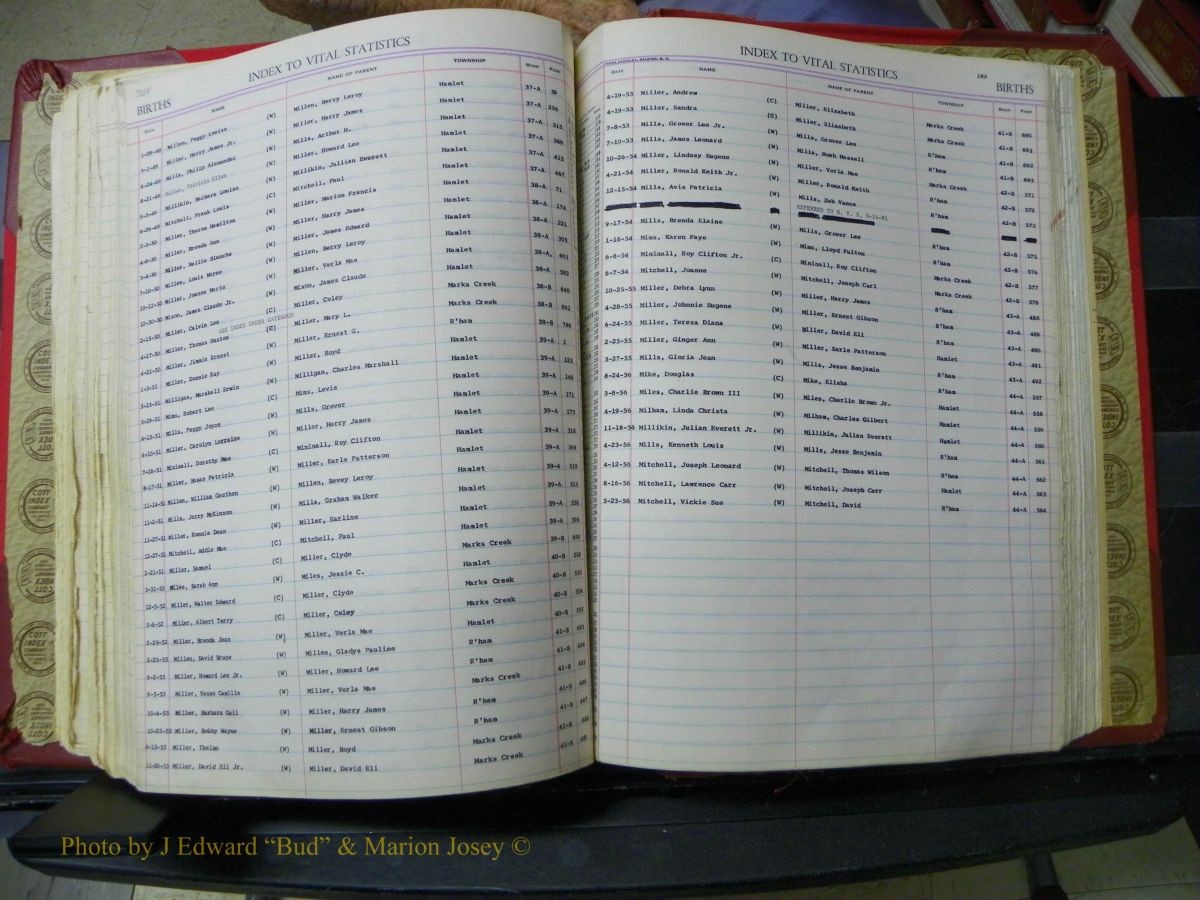 INDEX TO VITAL STATISTICS
BIRTHS
DATE NAME NAME OF PARENT TOWNSHIP BOOK PAGE
Millen, Peggy Louise (W) Millen, Berry Leroy Hamlet 37-A
Miller, Harry James Jr. (W) Miller, Harry James Hamlet 37-A 226
Mills, Philip Alexander (W) Mills, Arthur H. Hamlet 37-A
Miller, Patricia Ellen (W) Miller, Howard Lee Hamlet 37-A
Millikin, Barbara Louise (W) Millikin, Jullian Everett Hamlet 37-A 413
Mitchell, Frank Louis (C) Mitchell, Paul Hamlet 37-A
Miller, Theron Hamilton (W) Miller, Marion Francis Hamlet 38-A 71
Miller, Brenda Ann (W) Miller, Harry James Hamlet 38-A 174
Miller, Nellie Blanche (W) Miller, James Edward Hamlet 38-A 221
Millen, Louis Wayne (W) Millen, Berry Leroy Hamlet 38-A
Miller, Joanne Marie (W) Miller, Verla Mae Hamlet 38-A
Mixon, James Claude Jr. (W) Mixon, James Claude Hamlet 38-A 583
Miller, Calvin Lee (C) Miller, Coley Marks Creek 38-B 646
SEE INDEX UNDER GATEWOOD
Miller, Thomas Huston (C) Miller, Mary L. Marks Creek 38-B 661
Miller, Jimmie Ernest (W) Miller, Ernest G. R'ham 38-B 786
Miller, Donnie Ray (W) Miller, Boyd Hamlet 39-A 1
Milligan, Marshall Erwin (W) Milligan, Charles Marshall Hamlet 39-A 123
Mims, Robert Lee (C) Mims, Levie Hamlet 39-A 146
Mills, Peggy Joyce (W) Mills, Grover Hamlet 39-A 171
Miller, Carolyn Lorraine (W) Miller, Harry James Hamlet 39-A 173
Mininall, Dorothy Mae (C) Mininall, Roy Clifton Hamlet 39-A 318
Miller, Susan Patricia (W) Miller, Earle Patterson Hamlet 39-A
Millen, William Gauthen (W) Millen, Bevey Leroy Hamlet 39-A 510
Mills, Jerry McKinnon (W) Mills, Graham Walker Hamlet 39-A 515
Miller, Ronnie Dean (W) Miller, Earline Hamlet 39-A 536
Mitchell, Addie Mae (C) Mitchell, Paul Hamlet 39-A
Miller, Samuel (C) Miller, Clyde Marks Creek 39-B
Miles, Sarah Ann (W) Miles, Jessie C. Hamlet 40-B 552
12-5-52 Miller, Walter Edward (C) Miller, Clyde Marks Creek 40-B 553
5-6-52 Miller, Albert Terry (C) Miller, Coley Marks Creek 40-B 554
2-29-52 Miller, Brenda Jean (W) Miller, Verla Mae Hamlet 40-B 555
2-23-53 Millen, David Bruce (W) Millen, Gladys Pauline R'ham 41-B 683
9-2-53 Miller, Howard Lee Jr. (W) Miller, Howard Lee R'ham 41-B 684
9-5-53 Miller, Susan Camille (W) Miller, Verla Mae Marks Creek 41-B 685
10-4-53 Miller, Barbara Gail (W) Miller, Harry James R'ham 41-B 686
10-23-53 Miller, Bobby Wayne (W) Miller, Ernest Gibson R'ham 41-B 687
6-13-53 Miller, Thelma (W) Miller, Boyd Marks Creek 41-B 688
11-29-53 Miller, David Eli Jr. (W) Miller, David Eli Marks Creek 41-B 689
INDEX TO VITAL STATISTICS
182
BIRTHS
DATE NAME NAME OF PARENT TOWNSHIP BOOK PAGE
4-19-53 Miller, Andrew (C) Miller, Elizabeth Marks Creek 41-B 690
4-19-53 Miller, Sandra (C) Miller, Elizabeth Marks Creek 41-B 691
7-8-53 Mills, Grover Lee Jr. (W) Mills, Grover Lee R'ham 41-B 692
7-10-53 Mills, James Leonard (W) Mills, Noah Hassell R'ham 41-B 693
10-20-54 Miller, Lindsay Eugene (W) Miller, Verla Mae Marks Creek 42-B 571
4-21-54 Miller, Ronald Keith Jr. (W) Miller, Ronald Keith R'ham 42-B 572
12-15-54 Mills, Avis Patricia (W) Mills, Zeb Vance R'ham 42-B 573
REFERRED TO B. V. S. 9-14-81
9-17-54 Mills, Brenda Elaine (W) Mills, Grover Lee R'ham 42-B 575
1-16-54 Mims, Karen Faye (W) Mims, Lloyd Fulton R'ham 42-B 576
6-8-54 Mininall, Roy Clifton Jr. (C) Mininall, Roy Clifton Marks Creek 42-B 577
6-7-54 Mitchell, Joanne (W) Mitchell, Joseph Carl Marks Creek 42-B 578
10-25-55 Miller, Debra Lynn (W) Miller, Harry James R'ham 43-A 488
4-28-55 Miller, Johnnie Eugene (W) Miller, Ernest Gibson R'ham 43-A 489
6-24-55 Miller, Teresa Diana (W) Miller, David Eli R'ham 43-A 490
2-25-55 Miller, Ginger Ann (W) Miller, Earle Patterson Hamlet 43-A 491
5-27-55 Mills, Gloria Jean (W) Mills, Jesse Benjamin R'ham 43-A 492
8-24-56 Mike, Douglas (C) Mike, Elisha R'ham 44-A 557
3-8-56 Miles, Charlie Brown III (W) Miles, Charlie Brown Jr. Hamlet 44-A 558
4-19-56 Milham, Linda Christa (W) Milham, Charles Gilbert Hamlet 44-A 559
11-18-56 Millikin, Julian Everett Jr. (W) Millikin, Julian Everett Hamlet 44-A 560
4-23-56 Mills, Kenneth Louis (W) Mills, Jesse Benjamin R'ham 44-A 561
4-12-56 Mitchell, Joseph Leonard (W) Mitchell, Thomas Wilson R'ham 44-A 562
8-16-56 Mitchell, Lawrence Carr (W) Mitchell, Joseph Carr Hamlet 44-A 563
5-23-56 Mitchell, Vickie Sue (W) Mitchell, David R'ham 44-A 564
COTT INDEX COMPANY
Photo by J Edward “Bud” & Marion Josey ©